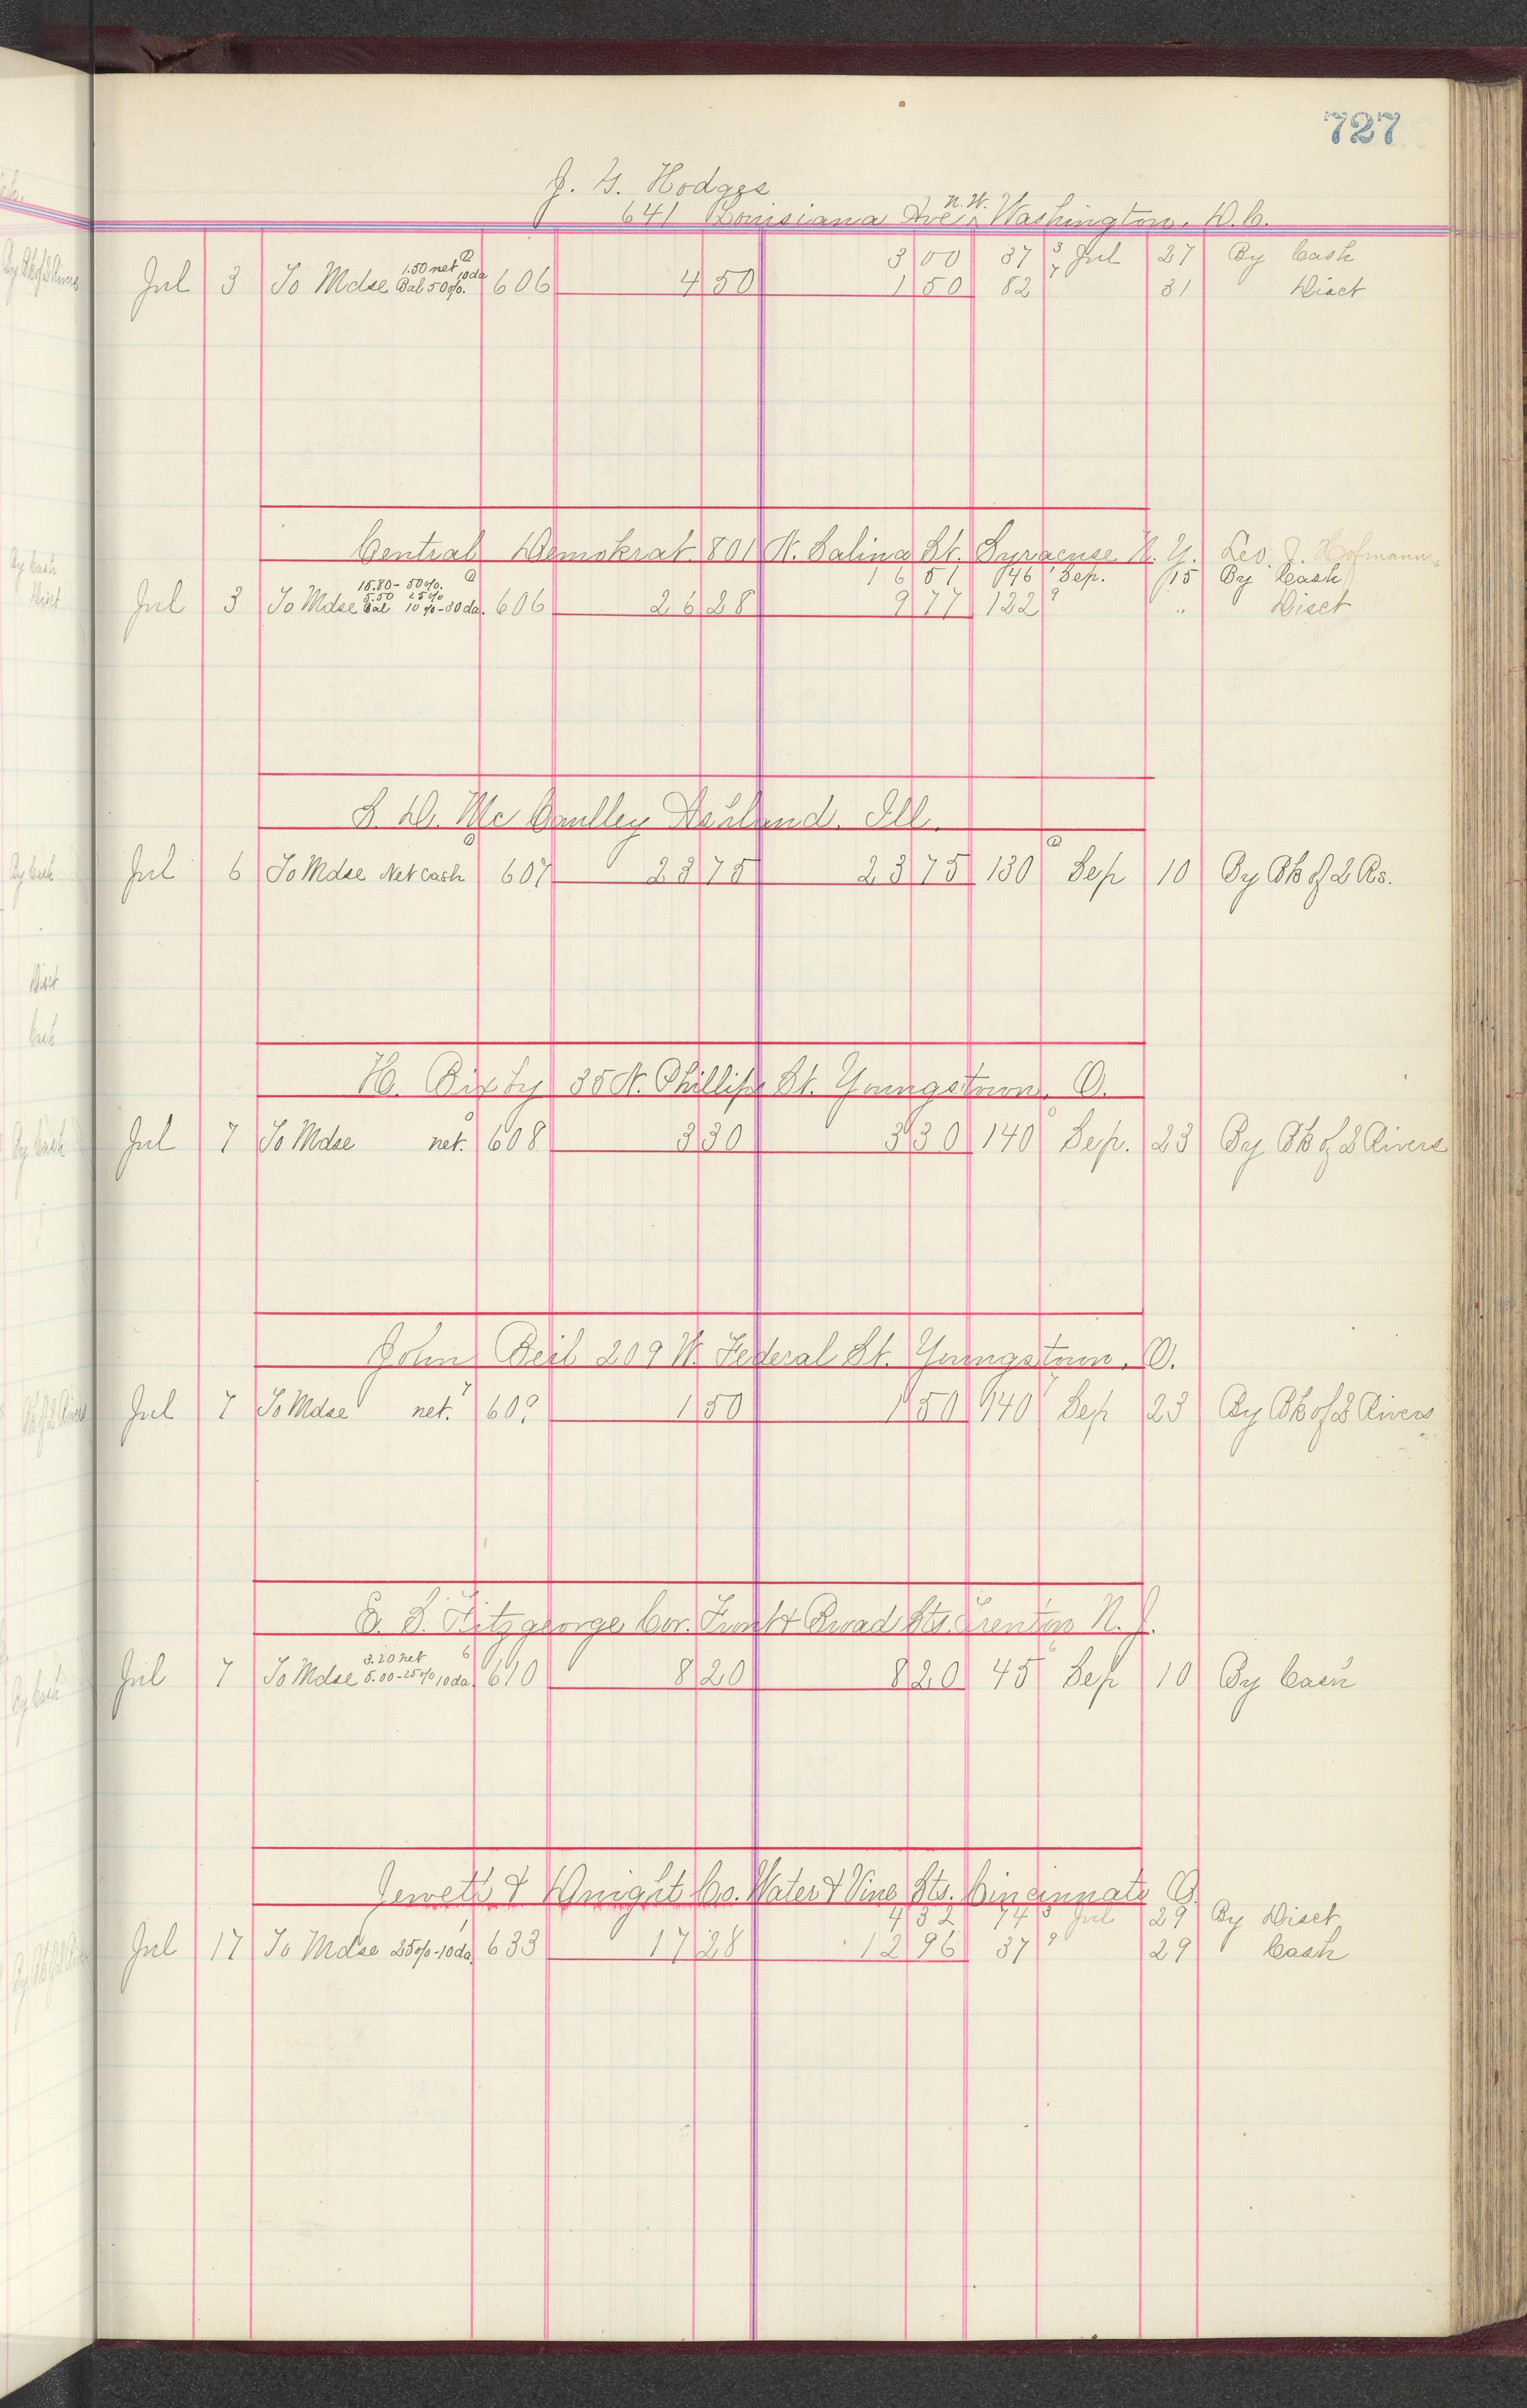 727
J. G. Hodges
641 Louisiana Ave. N.W. Washington. D.C.
3 00 37 3 Jul 27 By Cash
Jul 3 To Mdse 1.50 net 10 da Bal 50%. 606 4 50 1 50 82 7 31 Disct
Central Demokrat 801 N. Salina St. Syracuse N.Y. Leo. J. Hofmann.
16 51 146 Sep. 15 By Cash
Jul 3 To Mdse 15.80 - 50%. 5.50 25% Bal 10%-30 da. 606 26 28 9 77 122 9 " Disct
S. D. McCaulley Ashland. Ill.
Jul 6 To Mdse Net cash 607 23 75 23 75 130 Sep 10 By Bk of 2 Rs.
H. Bixby 35 N. Phillips St. Youngstown. O.
Jul 7 To Mdse net. 608 3 30 3 30 140 Sep. 23 By Bk of 2 Rivers
John Beil 209 W. Federal St. Youngstown. O.
Jul 7 To Mdse net. 609 1 50 1 50 140 Sep 23 By Bk of 2 Rivers
E. S. Fitzgeorge Cor. Front & Broad Sts. Trenton N.J.
Jul 7 To Mdse 3.20 net 5.00-25% 10 da 610 8 20 8 20 45 Sep 10 By Cash
Jewett & Knight Co. Water & Vine Sts. Cincinnati O.
4 32 74 3 Jul 29 By Disct
Jul 17 To Mdse 25%-10 da 633 17 28 12 96 37 9 29 Cash